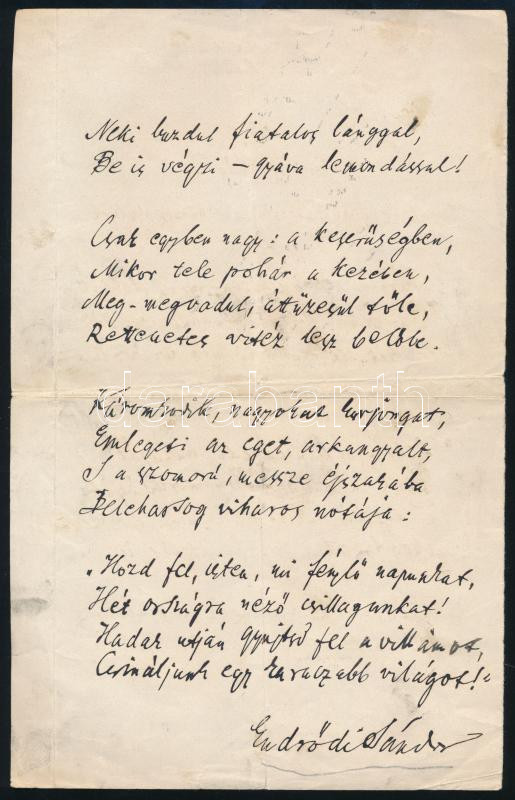 Neki buzdul fiatalos lánggal,
Be is végzi – gyáva lemondással!
Csak egyben nagy: a keserűségben,
Mikor tele pohár a kezében,
Meg-megvadul, áttüzesül tőle,
Rettenetes vitéz lesz belőle.
Káromkodik, nagyokat kurjongat,
Emlegeti az eget, arkangyalt,
S a szomorú, messze éjszakába
Beleharsog viharos nótája:
„Hozd fel, isten, mi fénylő napunkat,
Hét országra néző csillagunkat!
Hadak utján gyujtsd fel a villámot,
Csináljunk egy karaczabb világot!"
Endrődi Sándor
darabanth